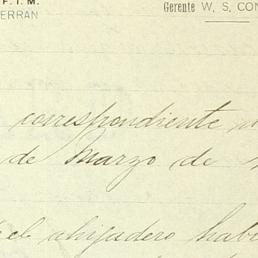 F. I. M.
ERRAN
Gerente W. S, CON
correspondiente
de Marzo de
el ahijadero habi